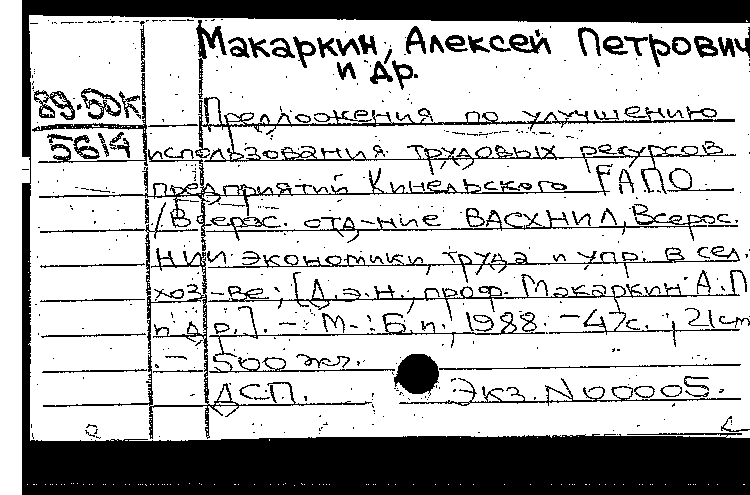 Макаркин, Алексей Петрович
и др.
89-50К
5614
Предложения по улучшению
использования трудовых ресурсов
предприятий Кинельского РАПО
/Всерос. отд-ние ВАСХНИЛ, Всерос.
НИИ экономики, труда и упр. в сел.
хоз-ве; [Д.э.н., проф. Макаркин А.П
и др.]. - М.: Б.и., 1988. - 47с.; 21см
. - 500 экз.
ДСП. Экз. N 00005.